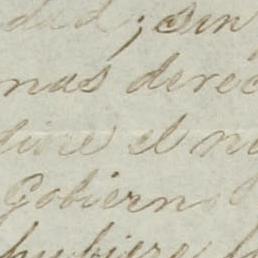 dad; sin
mas derec
diere el n
Gobierno
hubiere